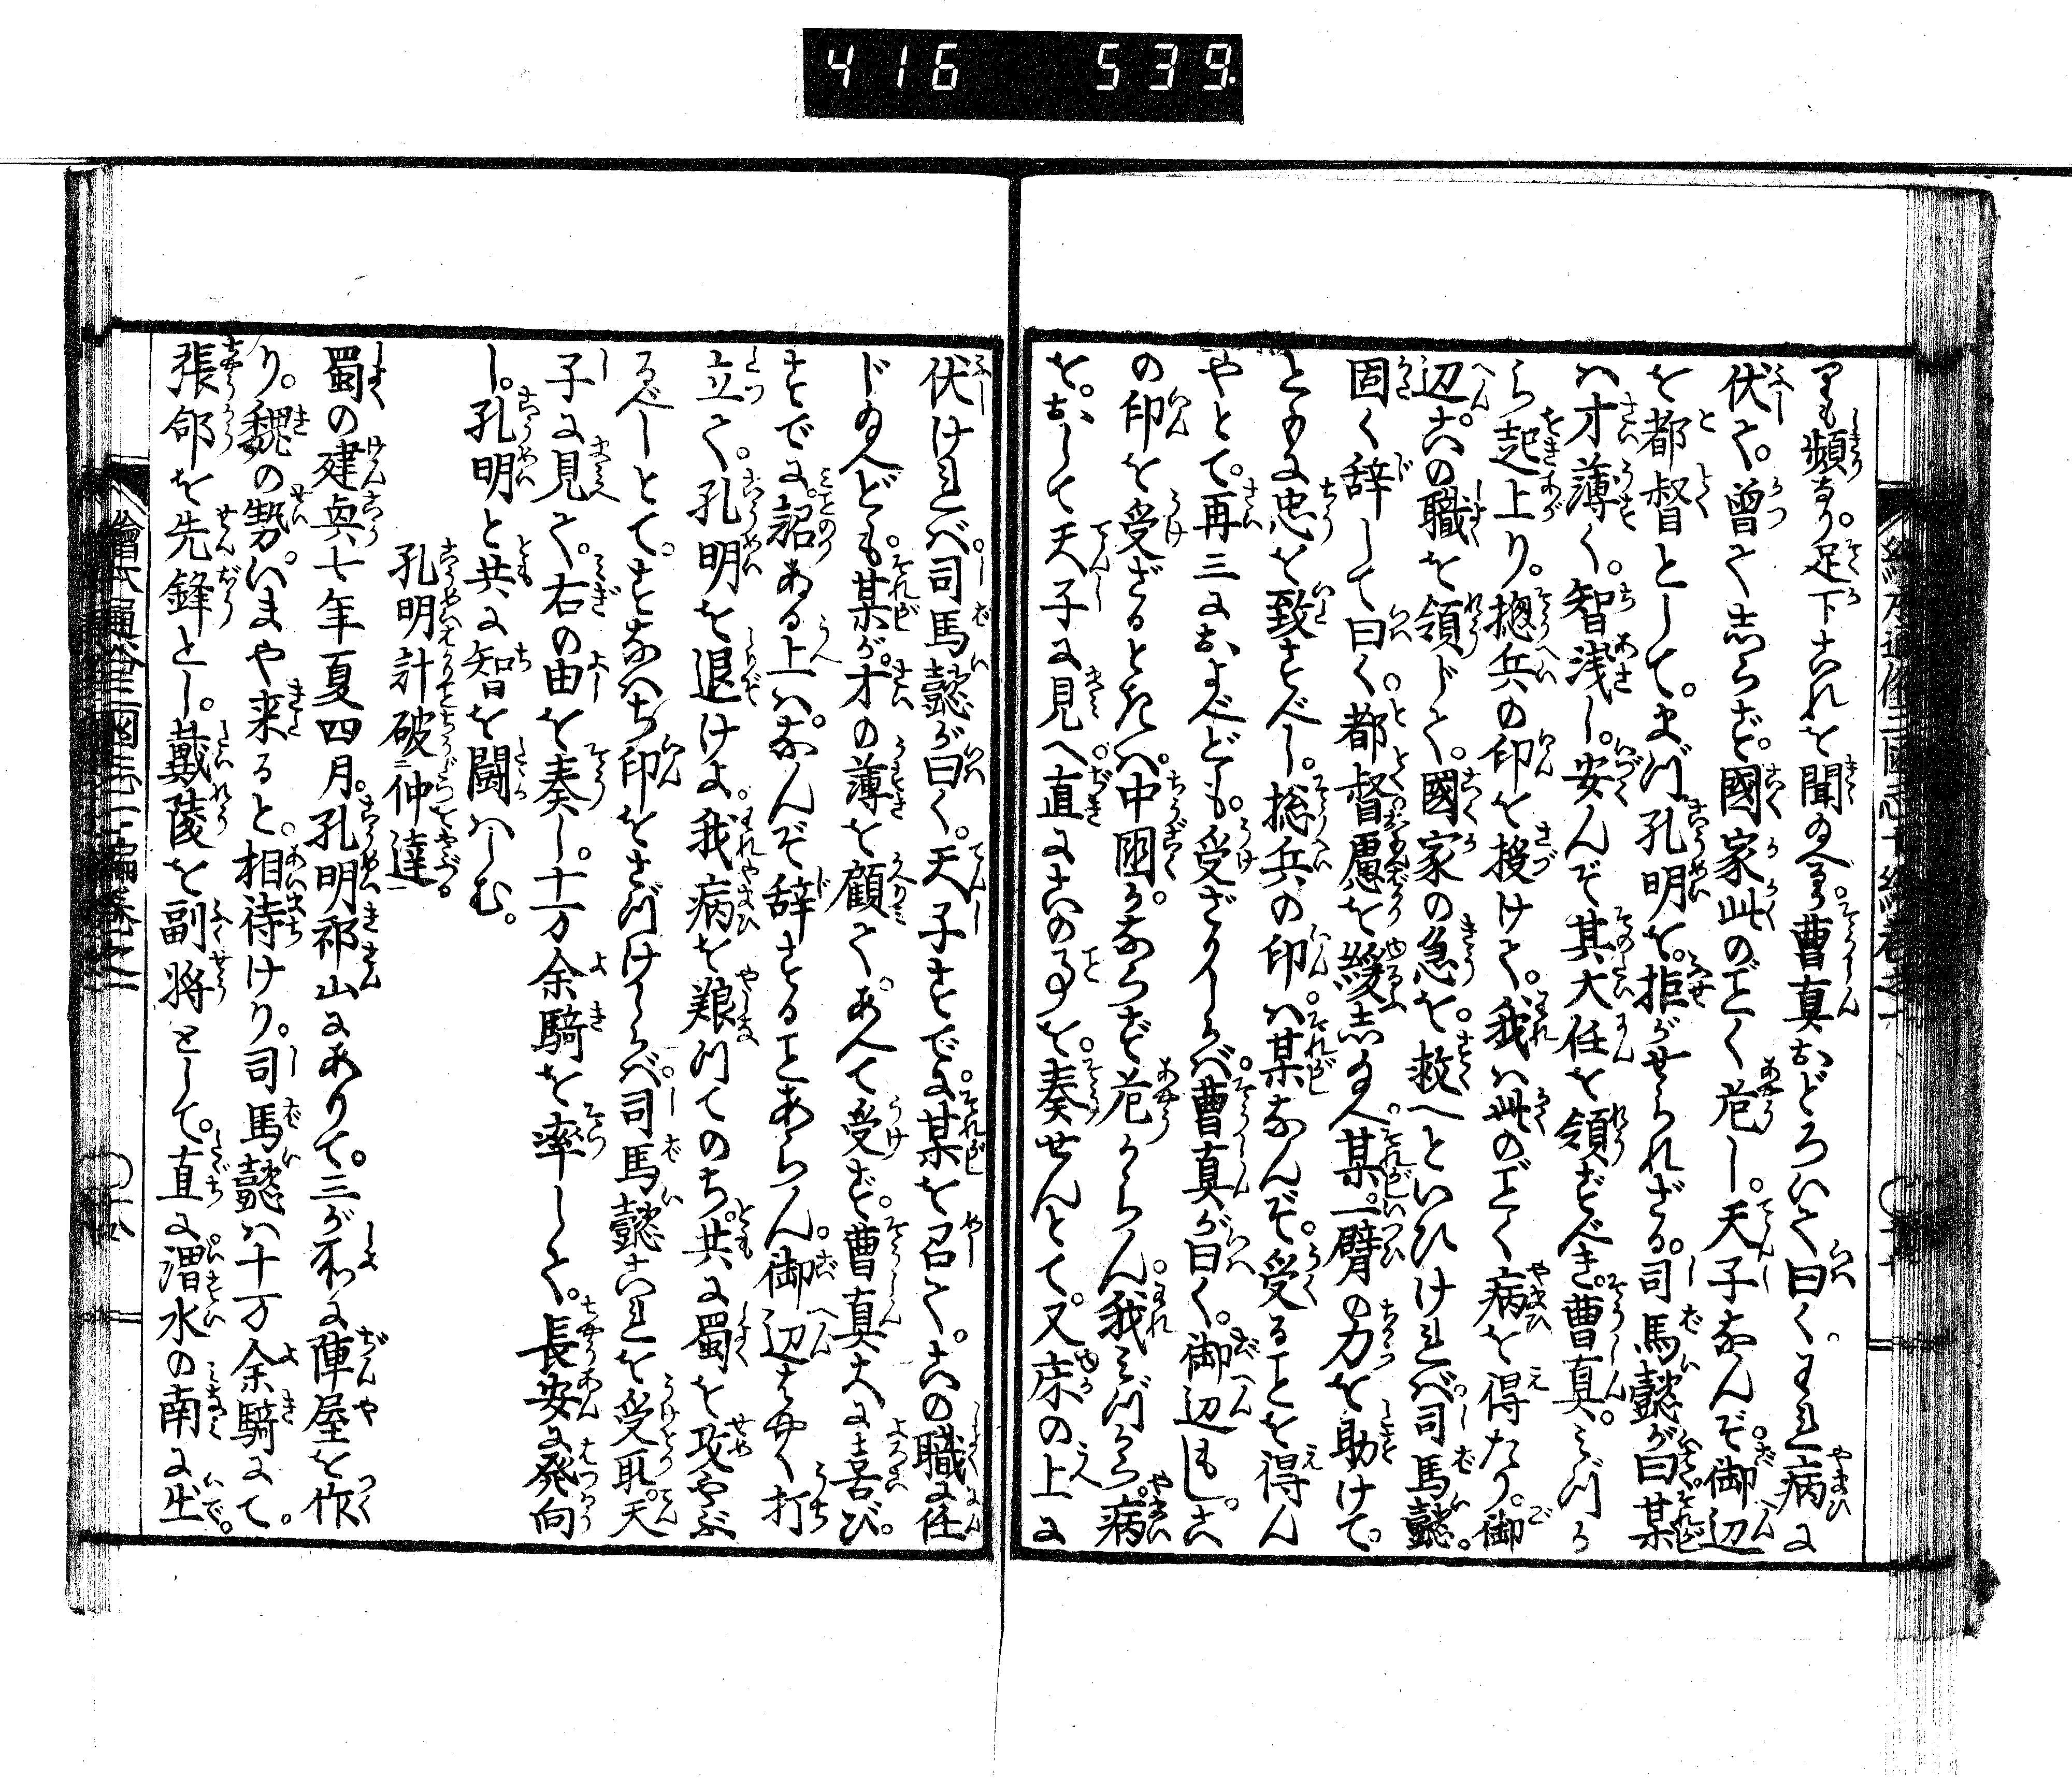 416 539
繪本通俗三國志七編卷之一
りも頻なり。足下これを聞給ふ。曹真おどろいて曰く。われ病に
伏て。曽てしらず。國家此のごとく危し。天子なんぞ。御辺
を都督として。まづ孔明を。拒がせられざる。司馬懿が曰某
ハ才薄く。智浅し。安んぞ其大任を領ずべき。曹真。みづか
ら起上り。揔兵の印を授けて。我ハ此のごとく病を得たり。御
辺この職を領じて。國家の急を。救へといひけれバ司馬懿。
固く辞して曰く。都督慮を緩したまへ。某一臂の力を助けて。
ともに忠を致すべし。揔兵の印ハ某なんぞ。受ることを得ん
やとて。再三におよべども。受ざりしらバ曹真が曰く。御辺もしこ
の印を受ざるときハ。中国かならず危からん。我みづから。病
を。おして天子に見へ。直にこの事を。奏せんとて。又床の上に
伏けれバ司馬懿が曰く。天子すでに。某を召て。この職に任
じ給へども。某が才の薄を顧て。あへて受ず。曹真大に喜び。
すでに。詔ある上ハ。なんぞ辞することあらん。御辺はやく打
立て。孔明を退けよ。我病を艱つてのち。共に蜀を攻やぶ
るべしとて。すなハち印をさづけしらバ司馬懿これを受取。天
子に見て。右の由を奏し。十万余騎を率して。長安に発向
し。孔明と共に智を闘ハしむ。
孔明計破二仲達一
蜀の建興七年夏四月。孔明祁山にありて。三が所に陣屋を作
り。魏の勢。いまや来ると。相待けり。司馬懿ハ十万余騎にて。
張郃を先鋒とし。戴陵を副将として。直に渭水の南に出。
繪本通俗三國志七編卷之一